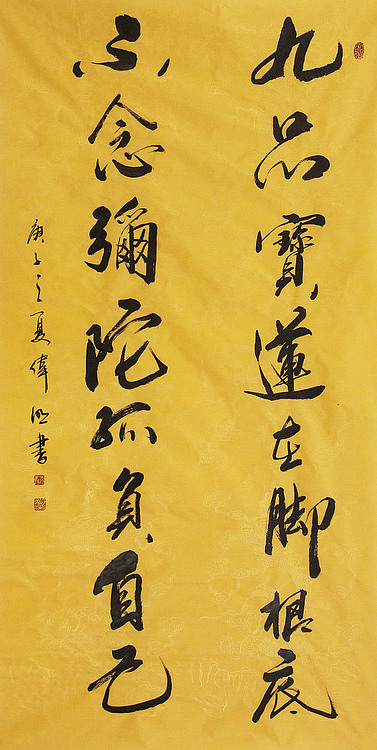 九品寶蓮在脚根底
不念彌陀孤負自己
庚子之夏偉明書